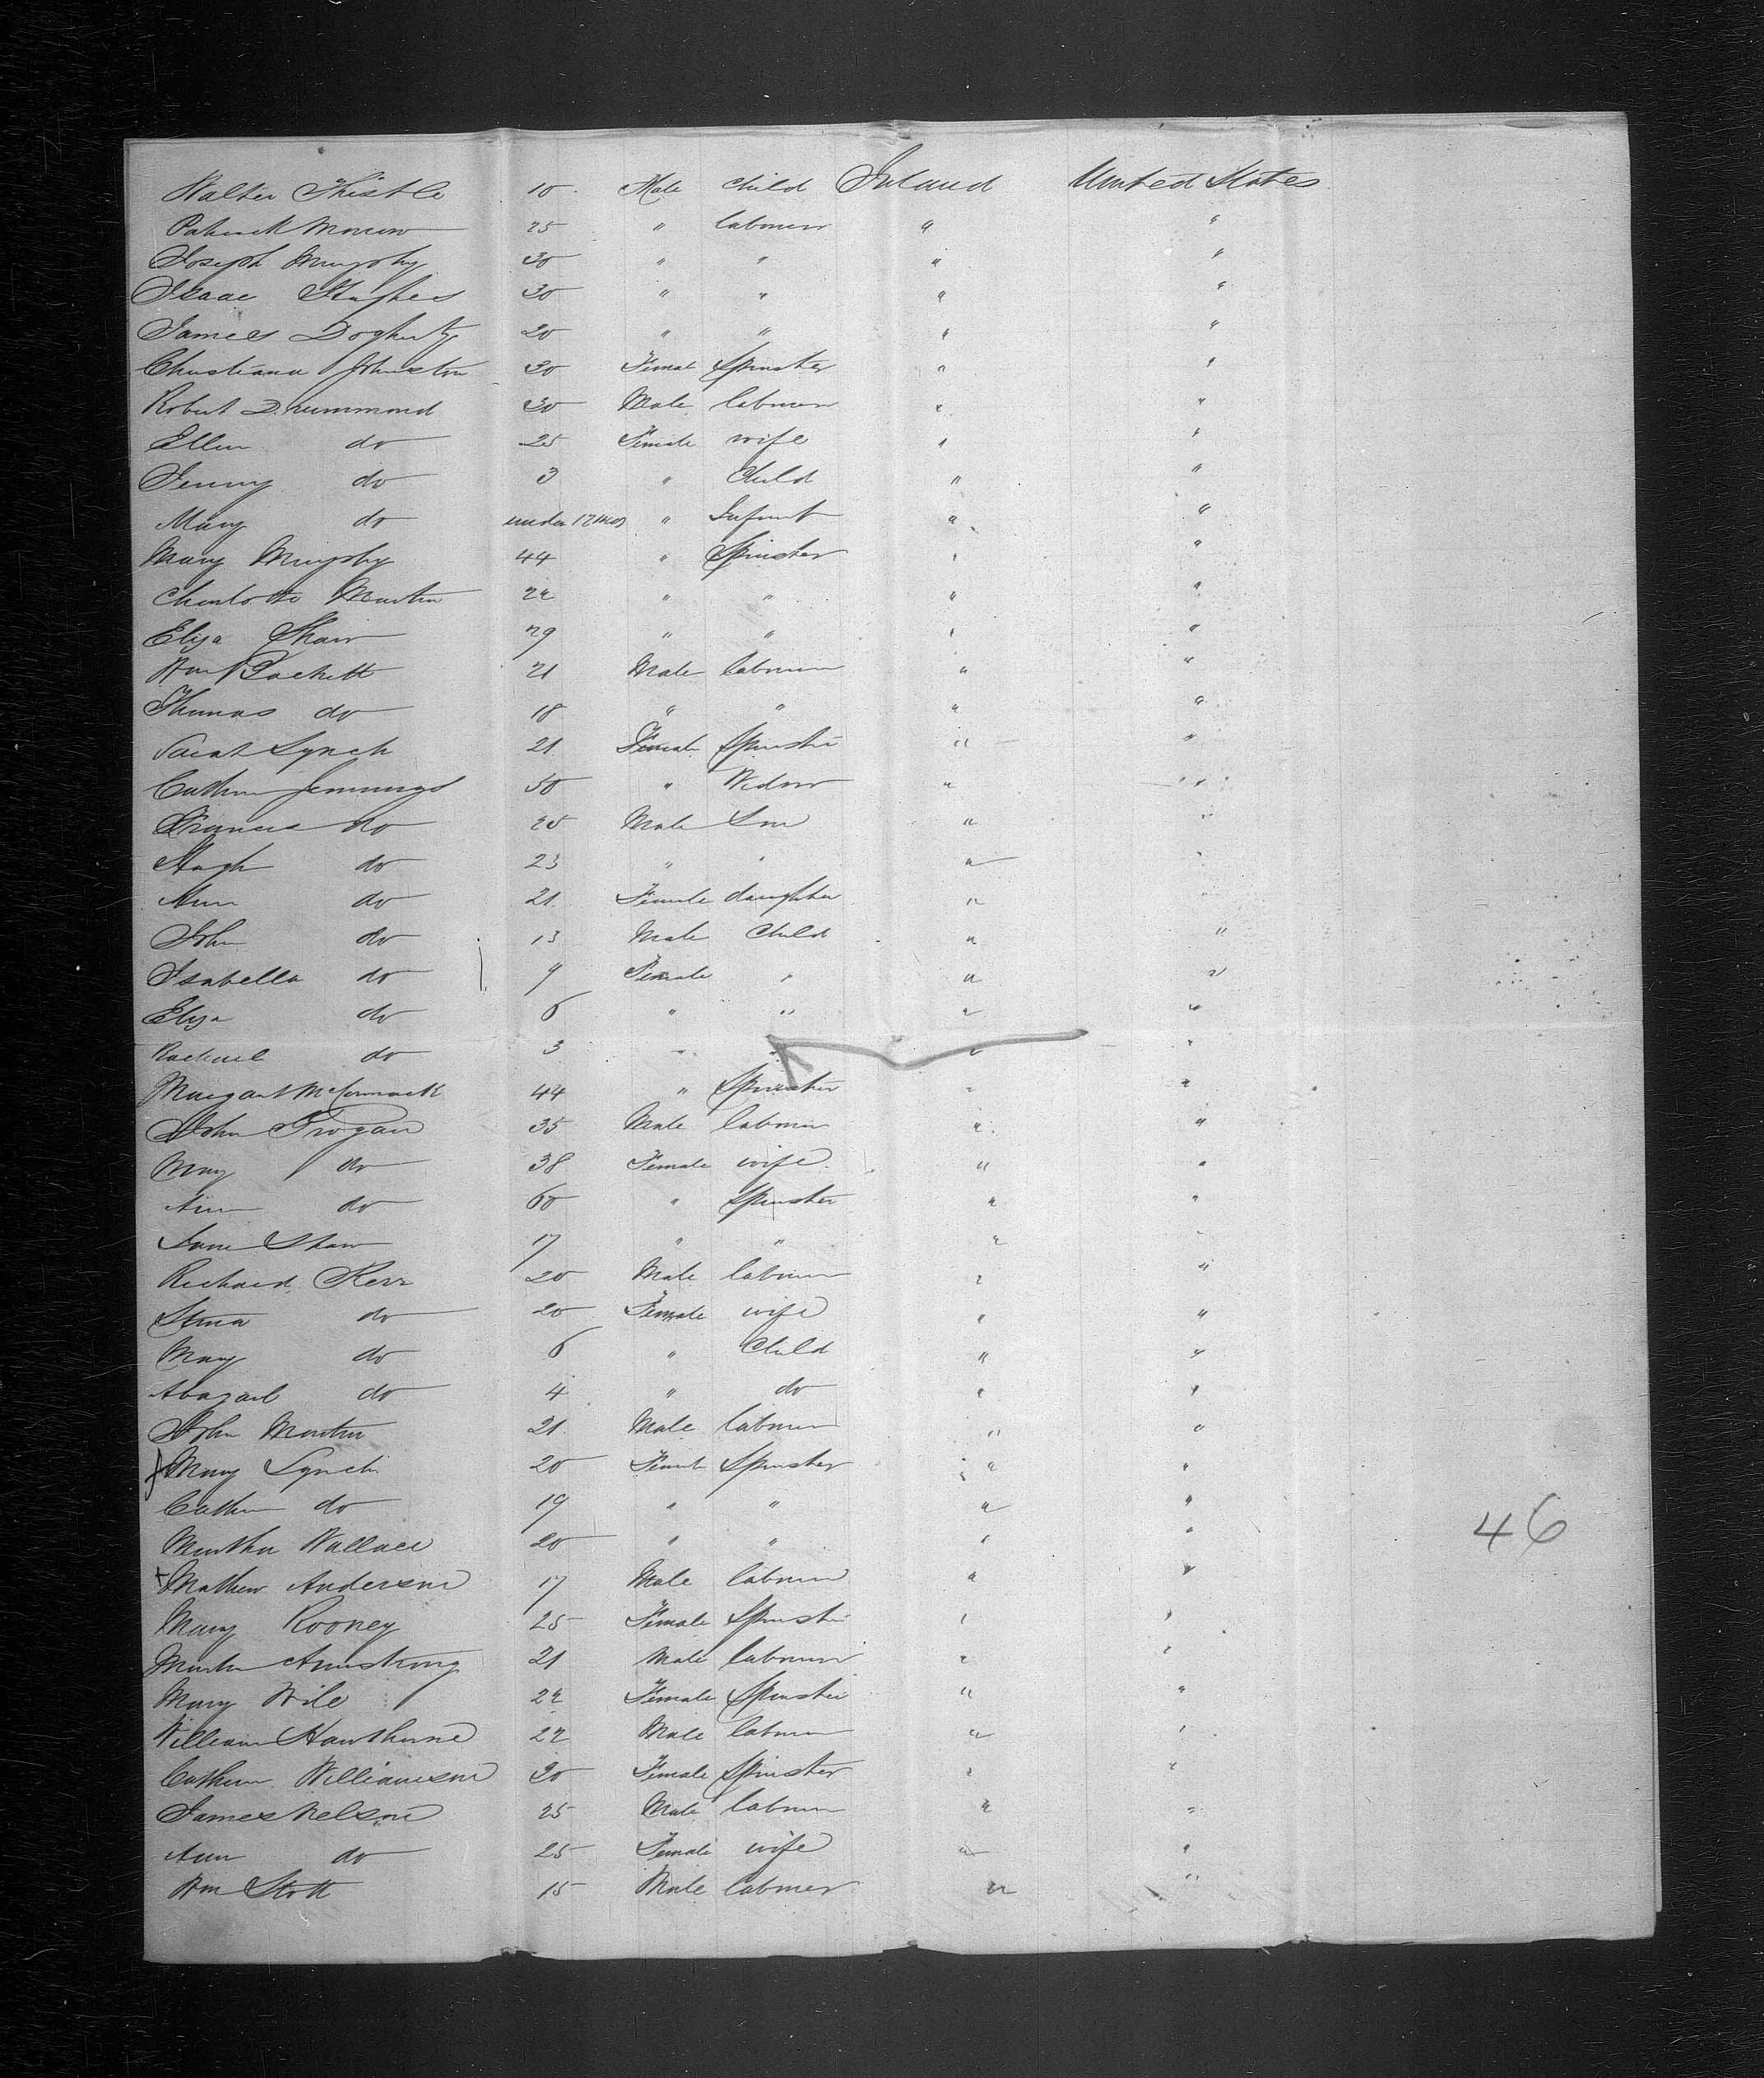 Walter Thistle 10 Male Child Ireland United States
Patrick Morrow 25 " labourer " "
Joseph Murphy 30 " " " "
Isaac Hughes 30 " " " "
James Dogherty 20 " " " "
Christiana Johnston 30 Femal Spinster " "
Robert Drummond 30 Male labourer " "
Ellen do 25 Female wife " "
Jenny do 3 " Child " "
Mary do under 12 mos " Infant " "
Mary Murphy 44 " Spinster " "
Charlotte Martin 22 " " " "
Eliza Shaw 29 " " " "
Wm 21 Male labourer " "
Thomas do 18 " " " "
Lynch 21 Female Spinster " "
Cathrin Jennings 50 " Widow " "
Francis do 25 Male Son " "
Hugh do 23 " " " "
Ann do 21 Female daughter " "
John do 13 Male Child " "
Isabella do 9 Female " " "
Eliza do 6 " " " "
Rachael do 3 " " " "
Margaret McCormack 44 " Spinster " "
John Grogan 35 Male labourer " "
Mary do 38 Female wife " "
Ann do 60 " Spinster " "
Jane Shaw 17 " " " "
Richard Kerr 20 Male labourer " "
do 20 Female wife " "
Mary do 6 " Child " "
Abagail do 4 " do " "
John Martin 21 Male labourer " "
Mary Lynch 20 Female Spinster " "
Cathrin do 19 " " " "
Martha Wallace 20 " " " "
46
+ Mathew Anderson 17 Male labourer " "
Mary Rooney 25 Female Spinster " "
Armstrong 21 Male labourer " "
Mary Wile 22 Female Spinster " "
William Hawthorne 22 Male labourer " "
Cathrin Williamson 30 Female Spinster " "
James Nelson 25 Male labourer " "
Ann do 25 Female wife " "
Wm Stott 15 Male labourer " "